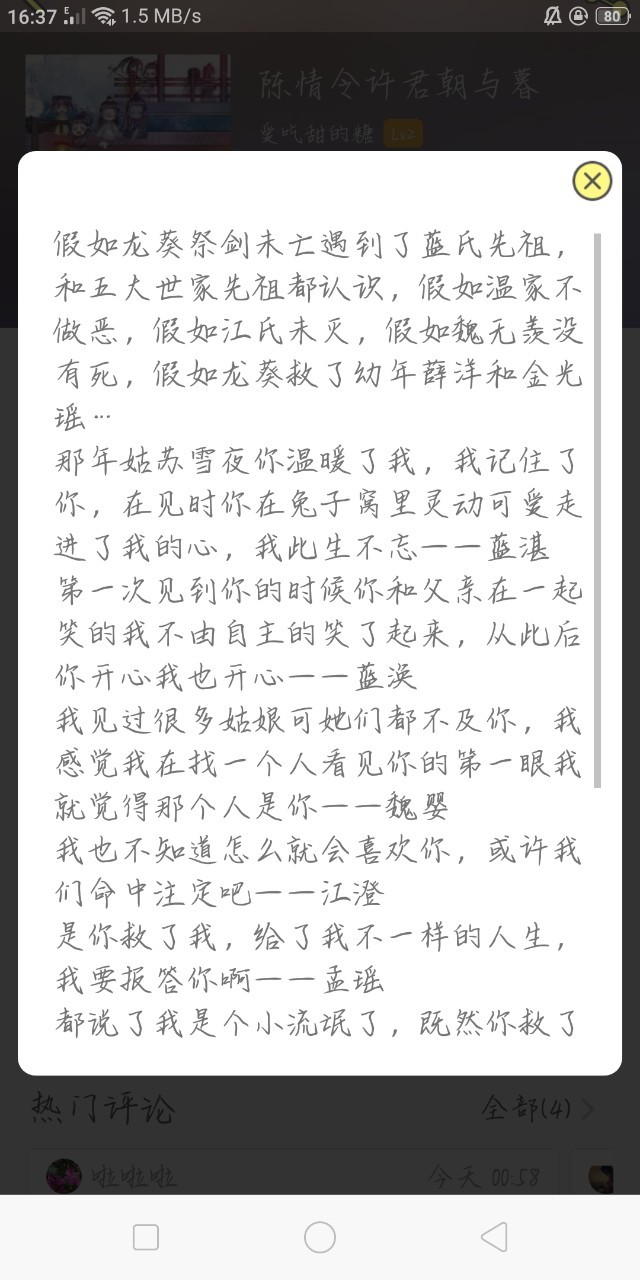 16:37 1.5 MB/s 80
陈情令许君朝与暮
爱吃甜的糖 Lv2
假如龙葵祭剑未亡遇到了蓝氏先祖，
和五大世家先祖都认识，假如温家不
做恶，假如江氏未灭，假如魏无羡没
有死，假如龙葵救了幼年薛洋和金光
瑶…
那年姑苏雪夜你温暖了我，我记住了
你，在见时你在兔子窝里灵动可爱走
进了我的心，我此生不忘——蓝湛
第一次见到你的时候你和父亲在一起
笑的我不由自主的笑了起来，从此后
你开心我也开心——蓝涣
我见过很多姑娘可她们都不及你，我
感觉我在找一个人看见你的第一眼我
就觉得那个人是你——魏婴
我也不知道怎么就会喜欢你，或许我
们命中注定吧——江澄
是你救了我，给了我不一样的人生，
我要报答你啊——孟瑶
都说了我是个小流氓了，既然你救了
热门评论 全部(4)
啦啦啦 今天 00:58